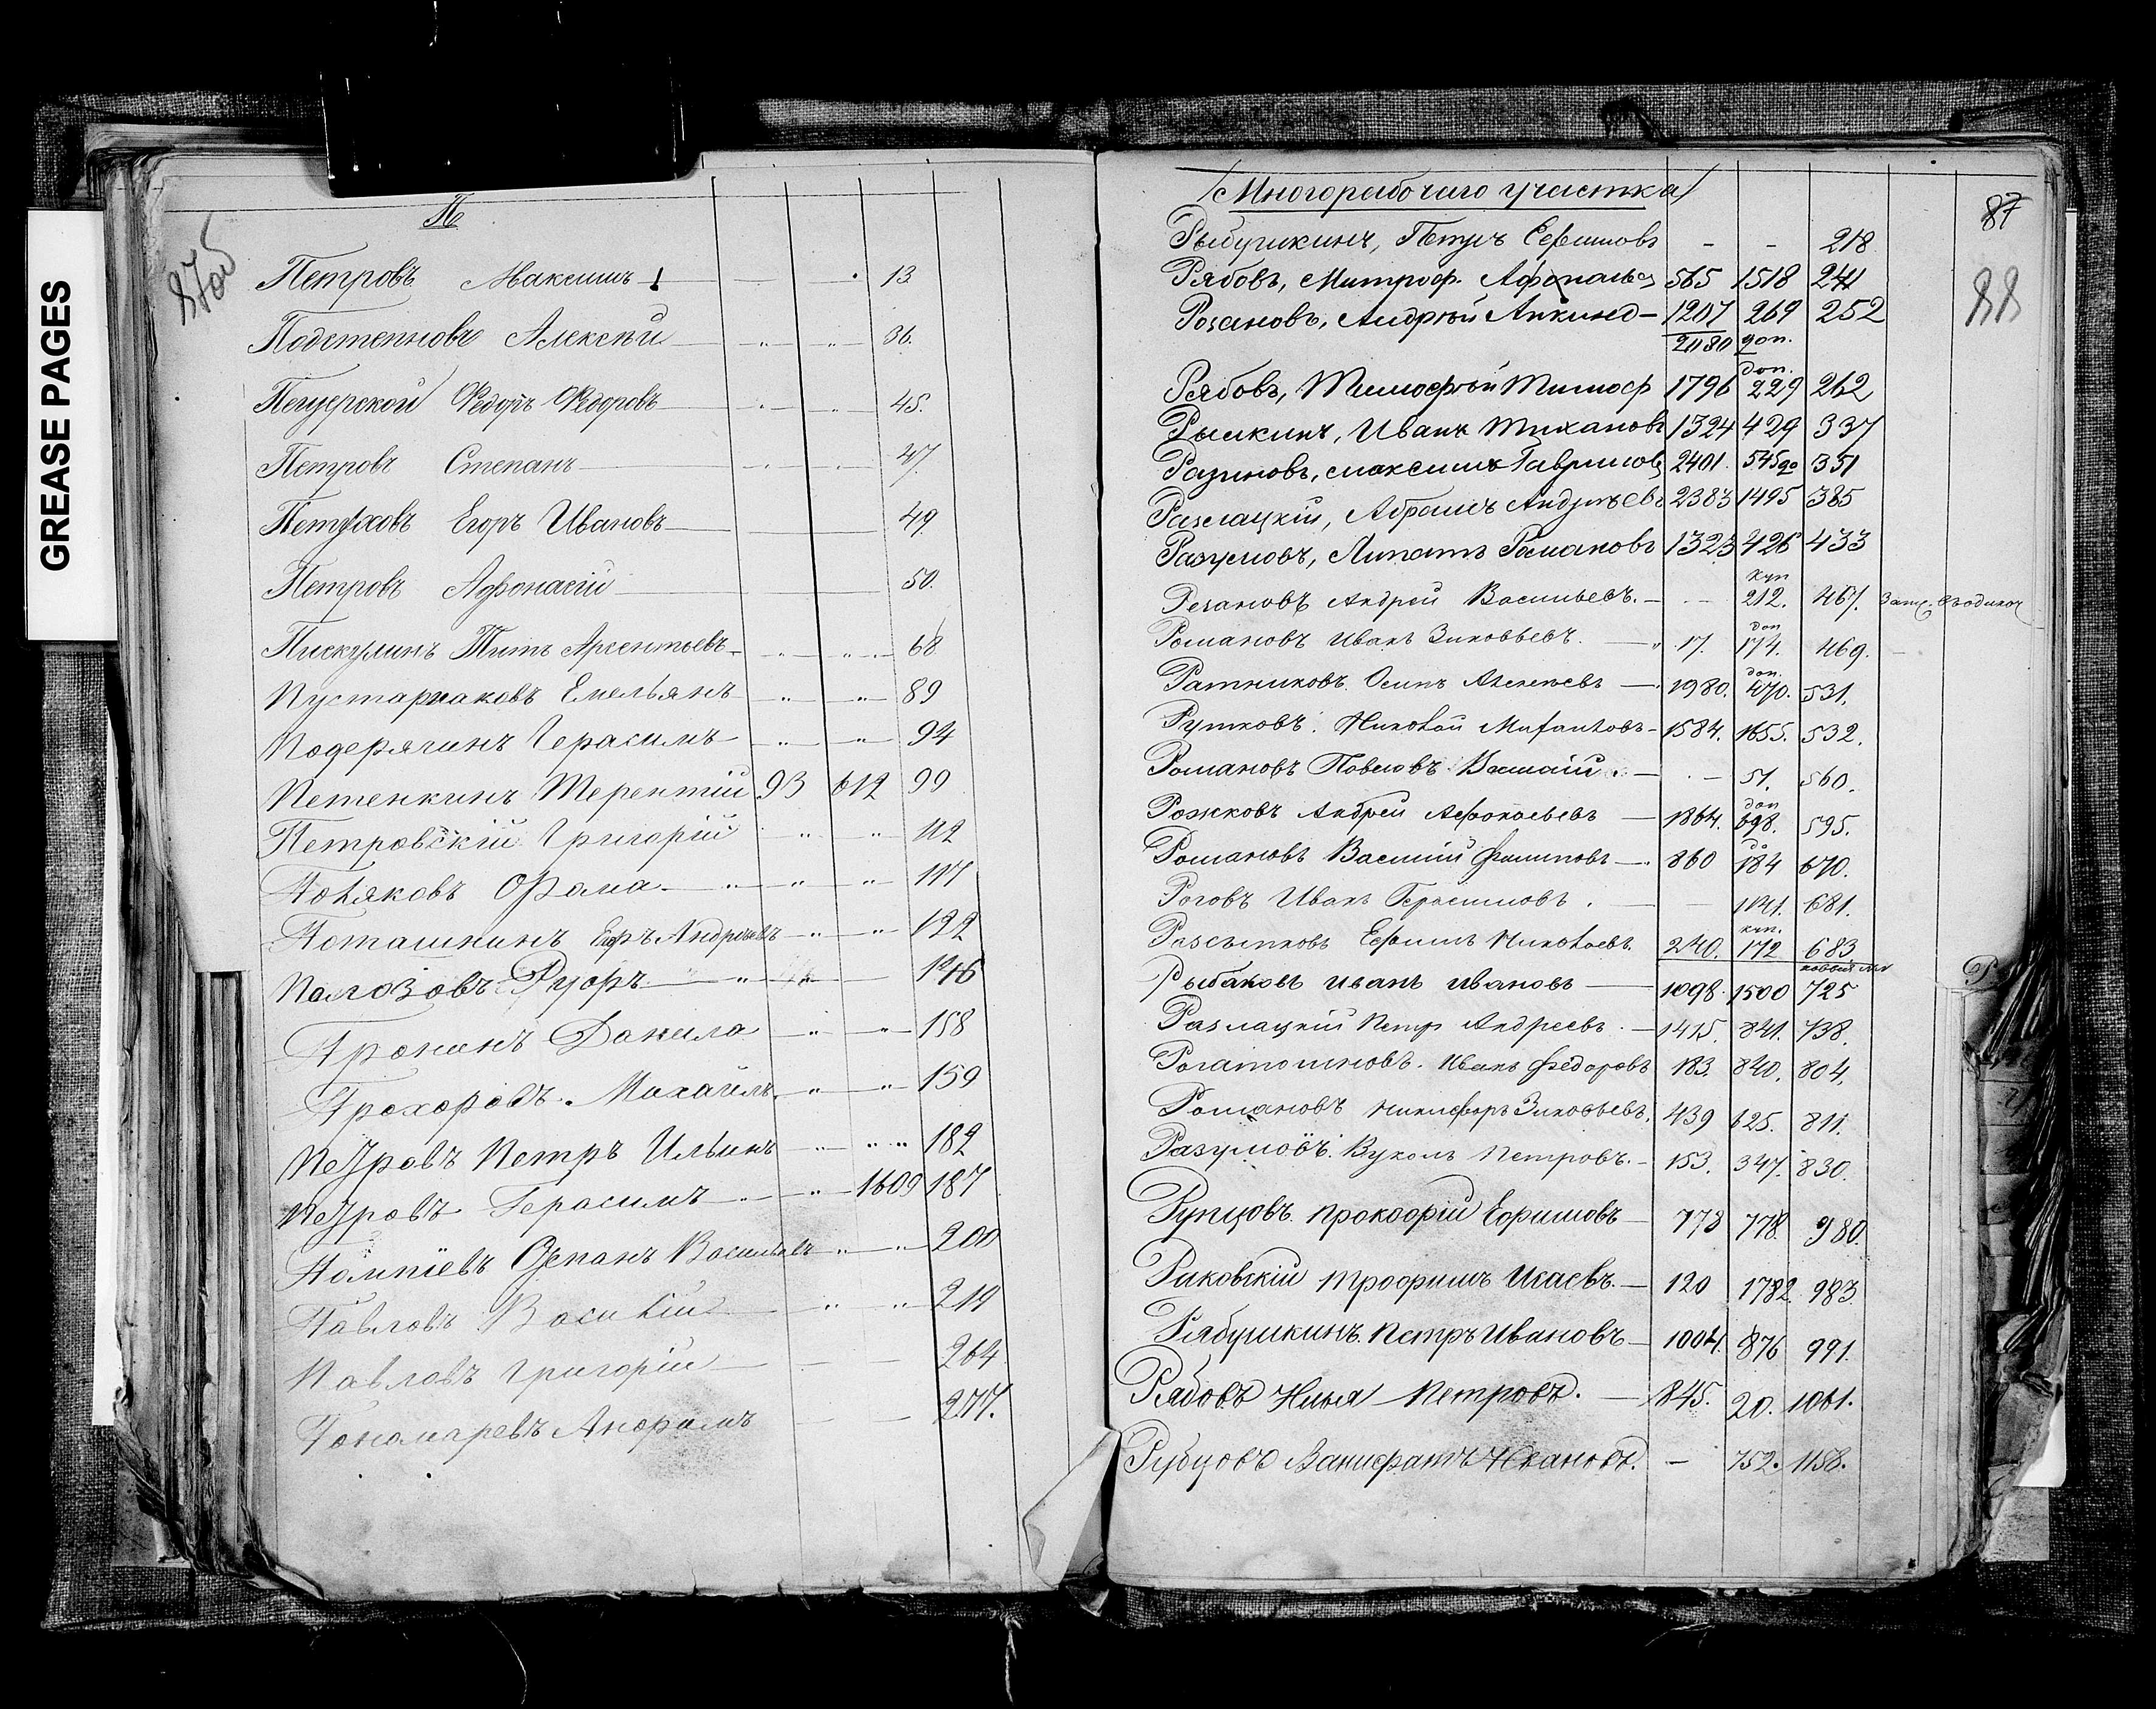 GREASE PAGES
87об
П
Петровъ Максимъ 13
Подстепновъ Алексѣй " " 36.
Печерской Федоръ Федоровъ " " 45.
Петровъ Степанъ " " 47.
Петуховъ Егоръ Ивановъ 49.
Петровъ Афонасій 50.
Пискулинъ Титъ Арсентьевъ " " 68
Пустарнаковъ Емельянъ " " 89
Подерягинъ Герасимъ " " 94
Петенкинъ Терентій 93 612 99
Петровскій Григорій " " 112
Поляковъ Фома " " " 117
Поташкинъ Егоръ Андреевъ " " 122
Полозовъ Ѳуоръ " " 146
Пронинъ Данила " " 158
Прохоровъ Михаилъ " " 159
Петровъ Петръ Ильинъ " " " 182
Петровъ Герасимъ " " 1609 187
Степанъ Васильевъ " " 200
Павловъ Василій " " 219
Павловъ Григорій 264
Пономаревъ 277.
87
88
Многорабочаго участка
Рыбушкинъ, Петръ Ефимовъ - - 218
Рябовъ, Митроф. Афонасьев 565 1518 241
Розановъ, Андрѣй Акинд- 1207 269 252
2080 доп.
доп.
Рябовъ, Тимофѣй Тимоф 1796 229 262
Рышкинъ, Иванъ Тихановъ 1324 429 337
Разиновъ, Максимъ Гавриловъ 2401. 545 до 351
Разлацкій, Абрамъ Андреевъ 2383 1495 385
Разумовъ, Липатъ Романовъ 1323 426 433
куп
Резановъ Андрей Васильевъ. - - 212. 467.
доп
Романовъ Иванъ Зиновьевъ. " 17. 174. 469.
доп.
Ратниковъ. Осипъ Алексѣевъ 1980. 470. 531.
Рутковъ. Николай Михайловъ 1584. 1655. 532.
Романовъ Павловъ Василій. - - 51. 560.
доп
Рожковъ Андрей Афонасьевъ 1864. 698. 595.
до
Романовъ Василій Филиповъ 860 184 670.
Роговъ Иванъ Герасимовъ. - - 1141. 681.
куп.
Разсыпковъ Ефимъ Николаевъ. 240. 172 683
Рыбаковъ Иванъ Ивановъ 1098. 1500 725
Разлацкій Петръ Андреевъ. 1415. 841. 738.
Рогатошновъ. Иванъ Федоровъ 183. 840. 804.
Романовъ Никифоръ Зиновьевъ. 439 625. 811.
Разумовъ. Вуколъ Петровъ. 153. 347. 830.
Рупцовъ. Прокофій Ефимовъ 778 778. 980.
Раковскій Трофимъ Исаевъ. 120 1782. 983.
Рябушкинъ. Петръ Ивановъ 1004. 876 991.
Рябовъ Илья Петровъ. 845. 20. 1061.
Рубцовъ Ванифатъ Ивановъ. - 752. 1158.
Р